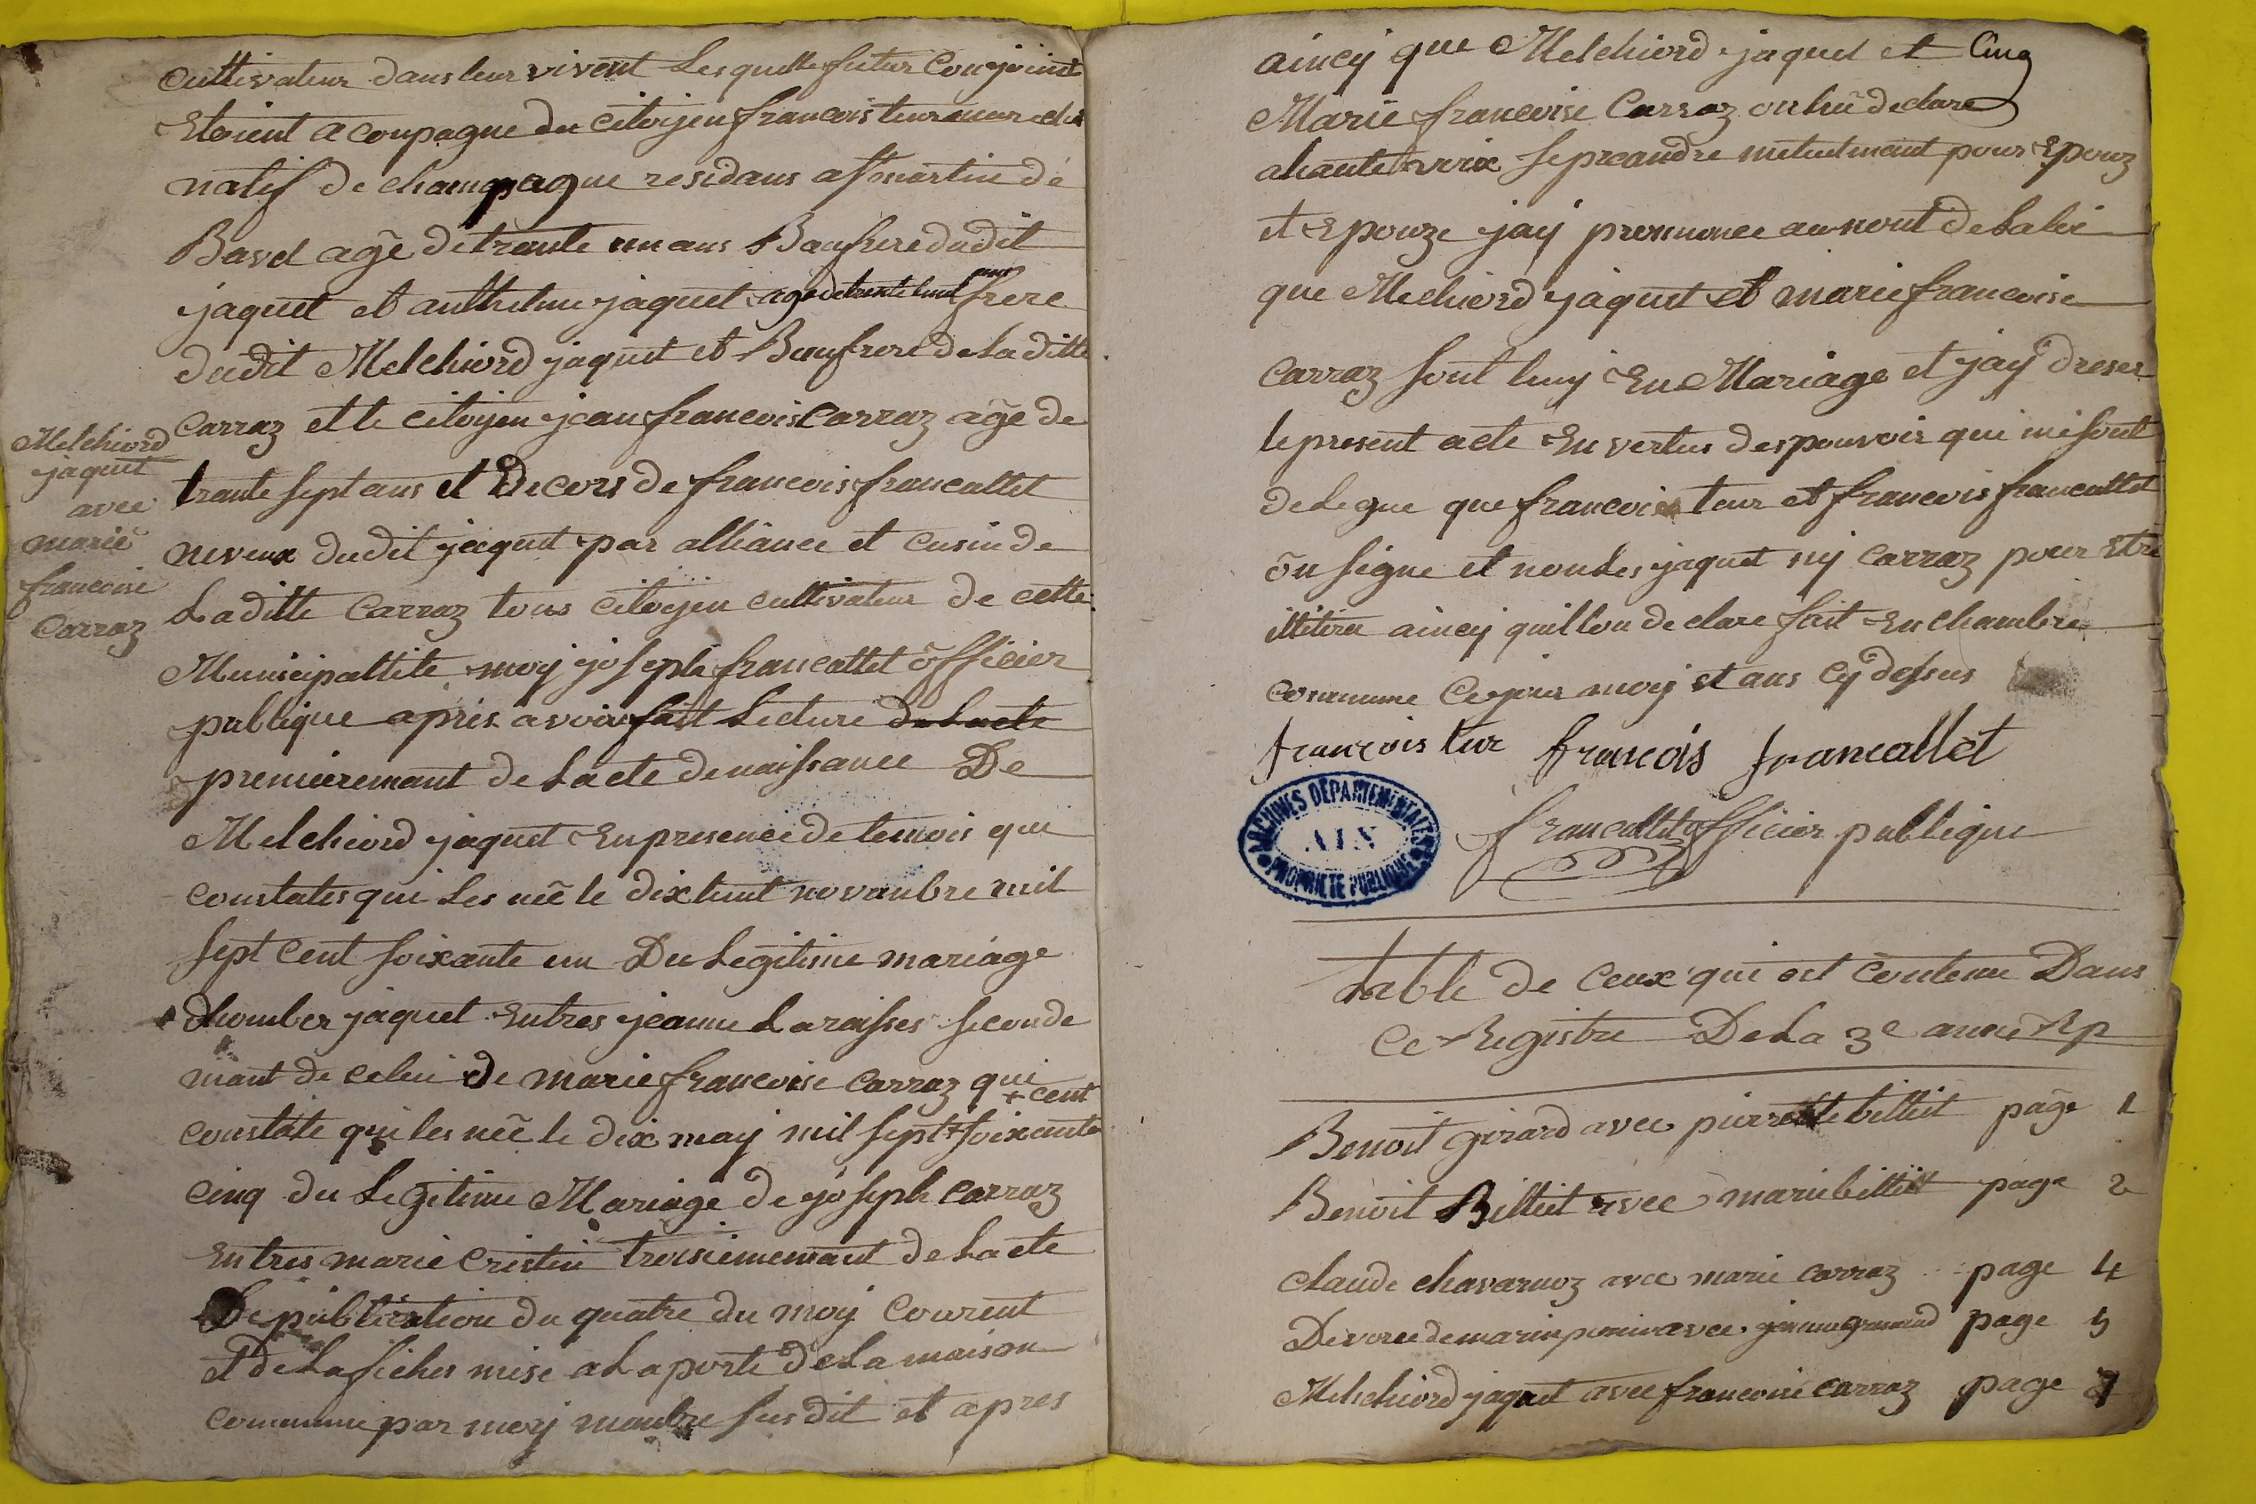 cultivateur dans leur vivent Lesquelle futur Conjoint
Etoient acoupagne du citoyen francois
natif de champagne residans a st martin de
Bavel agé de trante un ans Baufrere dudit
jaquet et anthelme jaquet agé de trente huit ans frere
dudit Melchiord jaquet et Baufrere de La ditte
Carraz et le citoyen jean francois Carraz agé de
Melchiord
jaquet
avec
marie
francoise
Carraz
trante sept ans et De cors de francois francallet
neveux dudit jaquet par alliance et cusin de
Laditte Carraz tous citoyen cultivateur de cette
Municipallite moy joseph francallet officier
publique apres avoir fait Lecture de Lacte
premieremant de Lacte de naissance De
Melchiord jaquet En presence de temois que
constates qui Les neé le dix huit novanbre mil
sept cent soixante un Du Legitime mariage
dhomber jaquet Entres jeanne Laraisses seconde
mant de celui de marie francoise carraz qui
constate qui les neé le dix may mil sept + cent soixante
cinq du Legitime Mariage de joseph carraz
Entres marie Cristin troisiememant de Lacte
De publication du quatre du moy Courent
et de Lafiches mise a La porte de La maison
commune par moy manbre susdit et apres
aincy que Melchiord jaquet et Cinq
Marie francoise Carraz on hü declare
ahaute voix se preandre mutuelmant pour Epouz
et Epouze jay prononce au nont de La loi
que Melchiord jaquet et marie francoise
carraz sont huny En Mariage et jay dreser
le present acte En vertus des pouvoir qui me sont
delegue que francois teur et francois francallet
on signe et non Les jaquet ny Carraz pour Etre
illitere aincy quillon declare fait En chambre
commune Ce jour moy et ans Cy dessus
francois tur francois francallet
francallet officier publique
ARCHIVES DÉPARTEMENTALES
AIN
PROPRIÉTÉ PUBLIQUE
table de Ceux qui est Contenu Dans
Ce Registre De La 3e anné Rp
Benoit girard avec pierrette billiet page 1
Benoit Billiet avec marie billiet page 2
claude chavarnoz avec marie carraz page 4
Devorce de marin avec page 5
Melchiord jaquet avec francoise carraz page 7